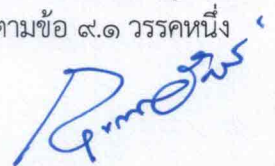 ตามข้อ ๙.๑ วรรคหนึ่ง